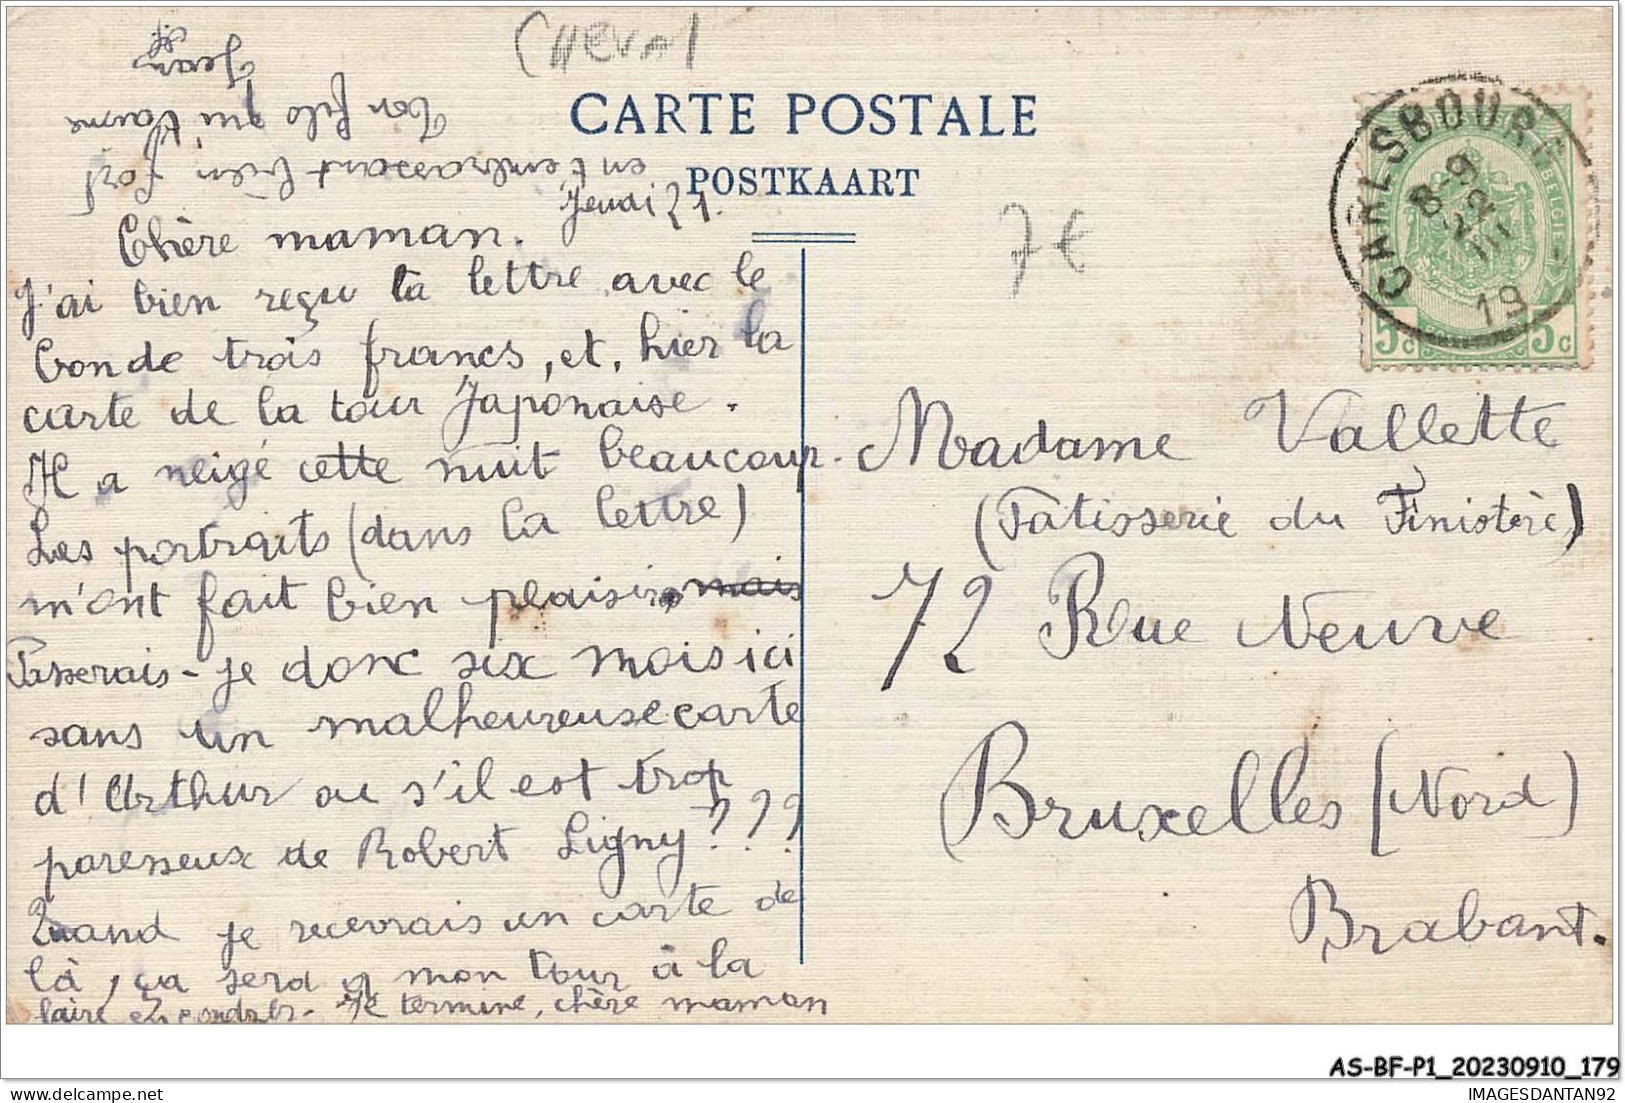 CHEVAL
CARTE POSTALE
POSTKAART
7€
CARLSBOURG
8-9
22
III
19
BELGIE
5c 5c
Jeudi 21.
Chère maman.
J'ai bien reçu ta lettre avec le
bon de trois francs, et, hier la
carte de la tour Japonaise.
Il a neigé cette nuit beaucoup.
Les portraits (dans la lettre)
m'ont fait bien plaisir, mais
Passerais-je donc six mois ici
sans un malheureuse carte
d'Arthur ou s'il est trop
paresseux de Robert Ligny???
Quand je recevrais un carte de
là, ça sera mon tour à la
faire Je termine, chère maman
en t'embrassant bien fort
Ton fils qui t'aime
Jean
Madame Vallette
(Patisserie du Finistère)
72 Rue Neuve
Bruxelles (Nord)
Brabant.
AS-BF-P1_20230910_179
IMAGESDANTAN92